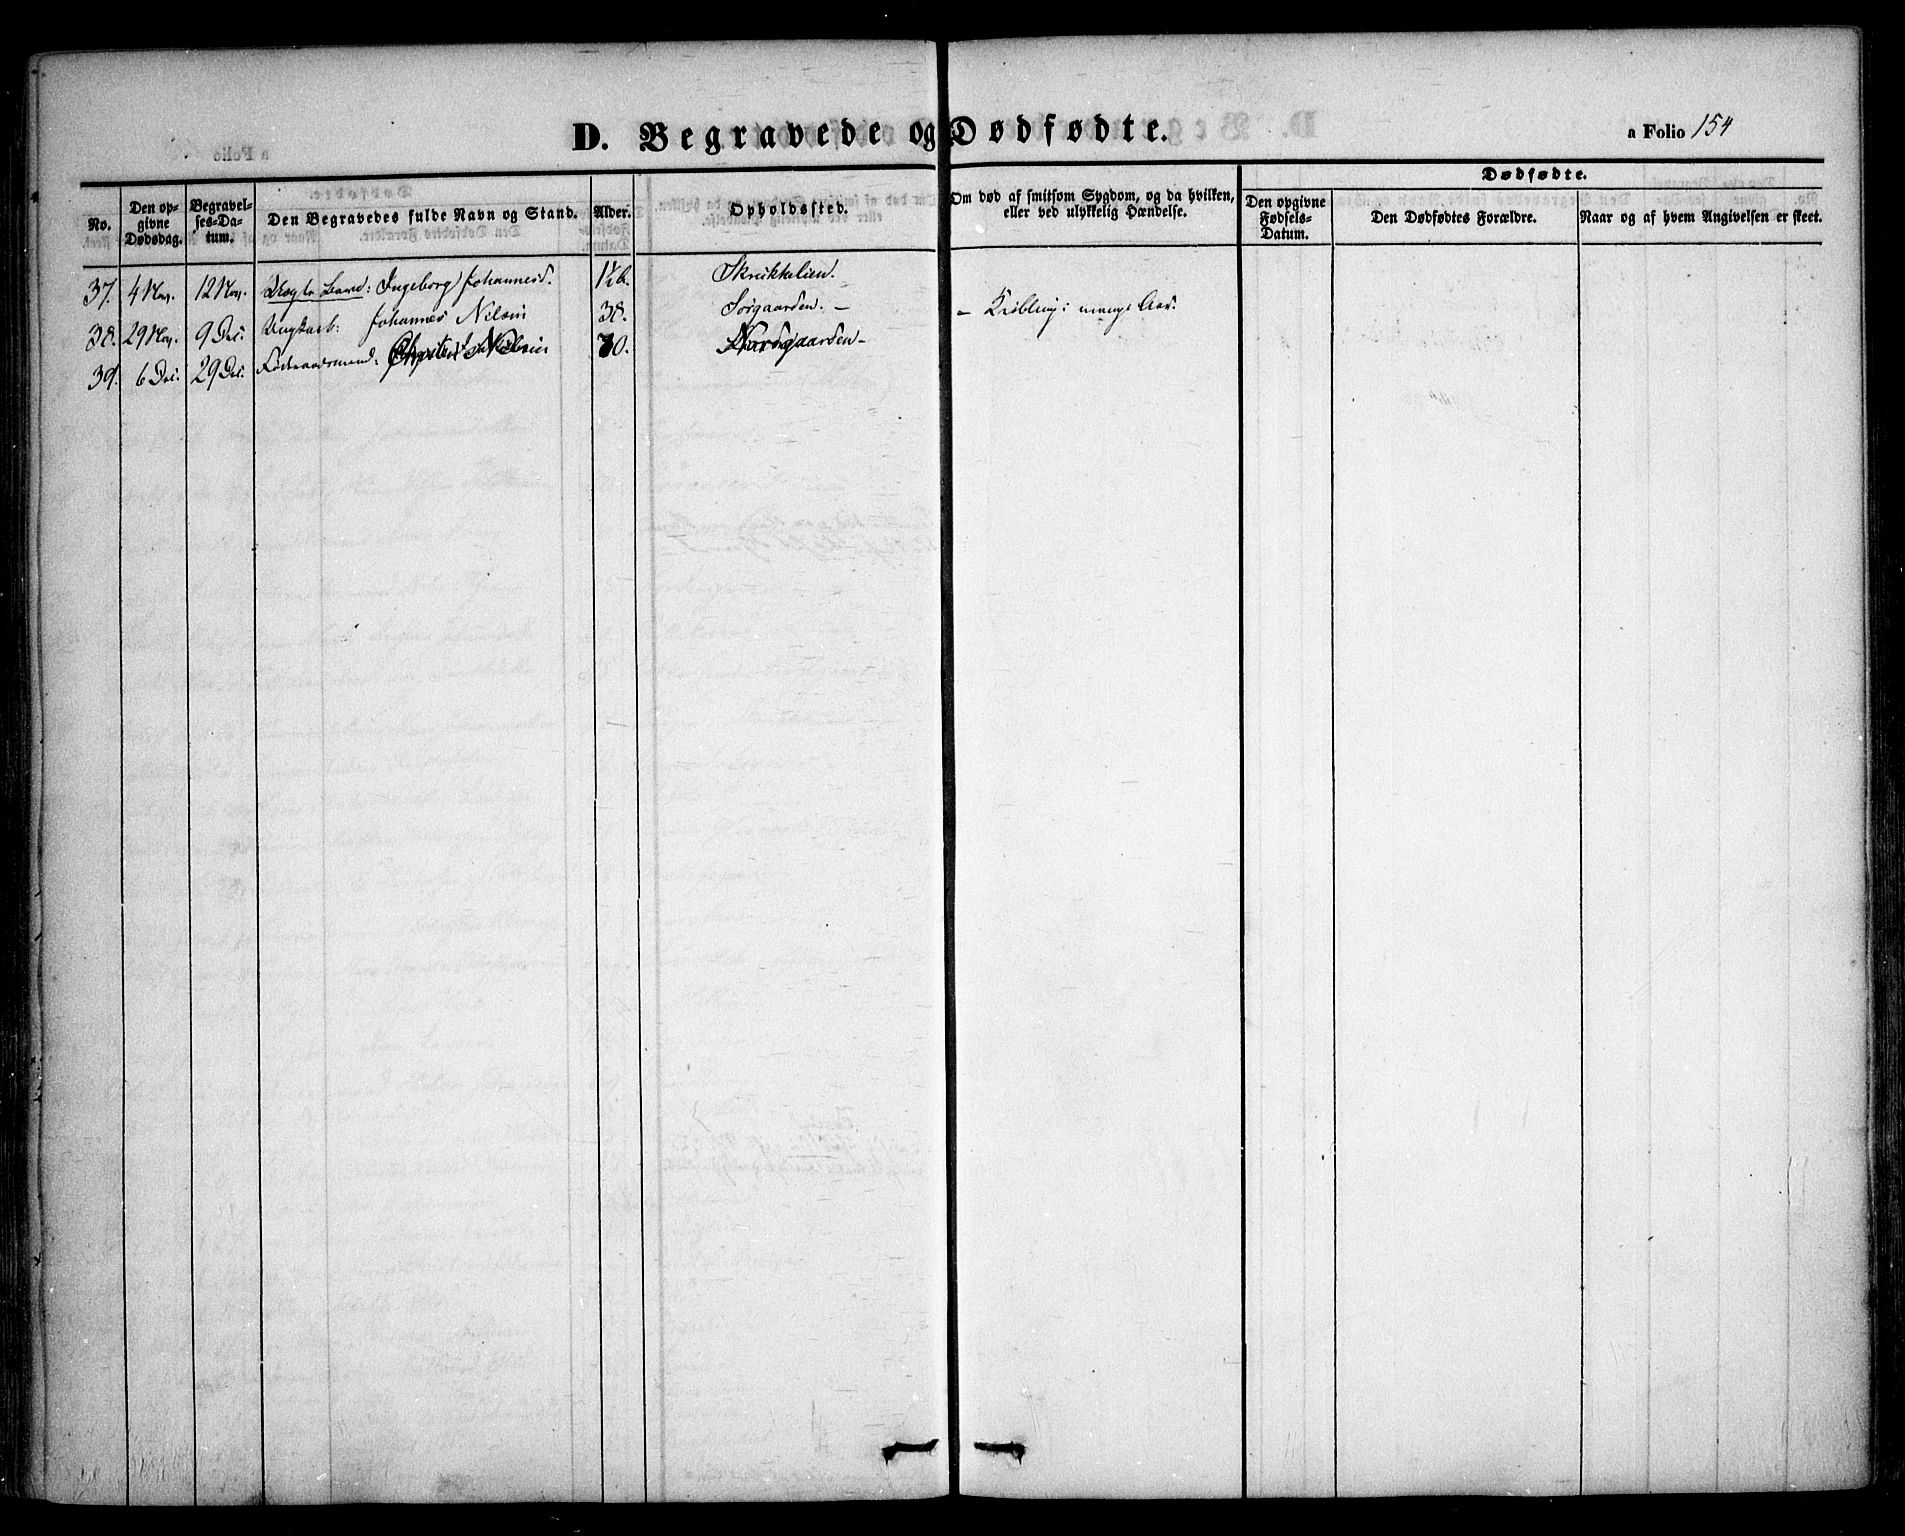 D. Begravede og Dødfødte.
a Folio 154
No.
Den op-
givne
Dødsdag.
Begravel-
ses-Da-
tum.
Den Begravedes fulde Navn og Stand.
Alder.
Opholdssted.
Om død af smitsom Sygdom, og da hvilken,
eller ved ulykkelig Hændelse.
Dødfødte.
Den opgivne
Fødsels-
Datum.
Den Dødfødtes Forældre.
Naar og af hvem Angivelsen er skeet.
37. 4 Nov. 12 Nov. Ingeborg Johannesd. Skrukkelien.
38. 29 Nov. 9 Dec. Johannes Nilsen 38. Sørgaarden. - - Krøbling i mange Aar.
39. 6 Dec. 29 Dec. 70. Nordgaarden -